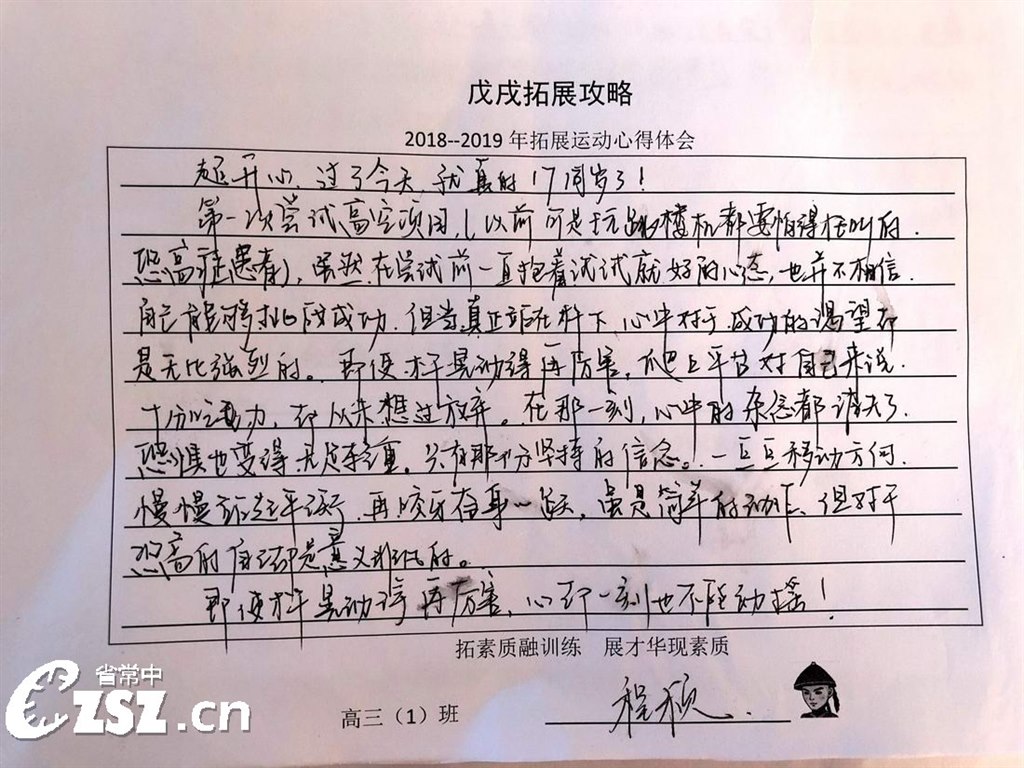 戊戌拓展攻略
2018--2019 年拓展运动心得体会
超开心,过了今天,就真的17周岁了!
第一次尝试高空项目,(以前可是玩跳楼机都要怕得狂叫的
恐高症患者),虽然在尝试前一直抱着试试就好的心态,也并不相信
自己能够挑战成功,但当真正站在杆下,心中对于成功的渴望却
是无比强烈的。即使木杆晃动得再厉害,爬上平台对自己来说
十分吃力,却从未想过放弃。在那一刻,心中的杂念都消失了
恐惧也变得无足轻重,只有那份坚持的信念。一点点移动方向
慢慢站起平衡,再咬牙存身一跃,虽是简单的动作,但对于
恐高的自己却是意义非凡的。
即使木杆晃动得再厉害,心却一刻也不能动摇!
拓素质融训练 展才华现素质
高三（1）班
程硕
省常中
CZSZ.cn